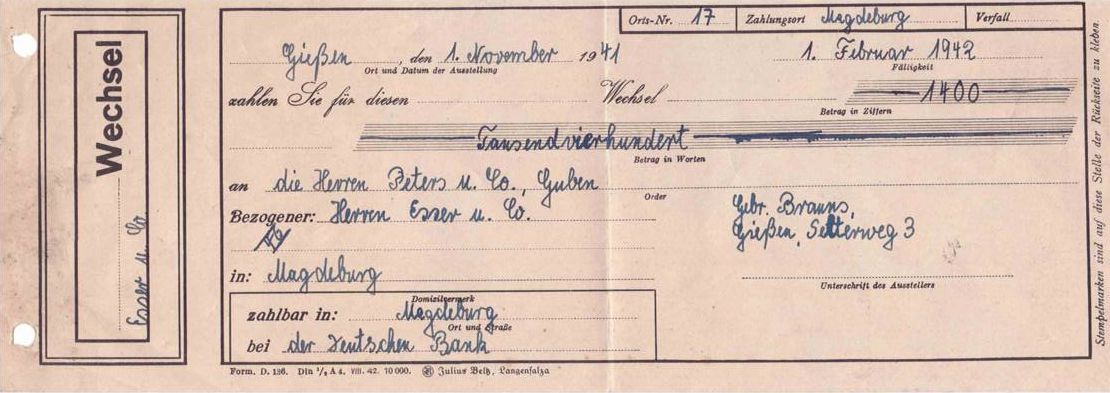 Orts-Nr. 17 Zahlungsort Magdeburg Verfall
Gießen, den 1. November 1941 1. Februar 1942
Ort und Datum der Ausstellung Fälligkeit
zahlen Sie für diesen Wechsel 1400
Betrag in Ziffern
Tausendvierhundert
Betrag in Worten
an die Herren Peters u. Co., Guben
Order
Bezogener: Herren Esser u. Co. Gebr. Brauns,
Gießen, Selterweg 3
in: Magdeburg
Unterschrift des Ausstellers
Domizilvermerk
zahlbar in: Magdeburg
Ort und Straße
bei der Deutschen Bank
Form. D. 136. Din 1/2 A 4. VIII. 42. 10 000. Julius Beltz, Langensalza
Wechsel
Esser u. Co
Stempelmarken sind auf diese Stelle der Rückseite zu kleben.